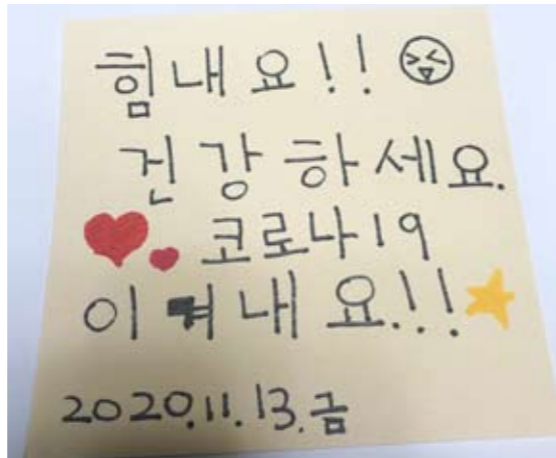 힘내요!!
건강하세요.
코로나19
이겨내요!!
2020.11.13.금